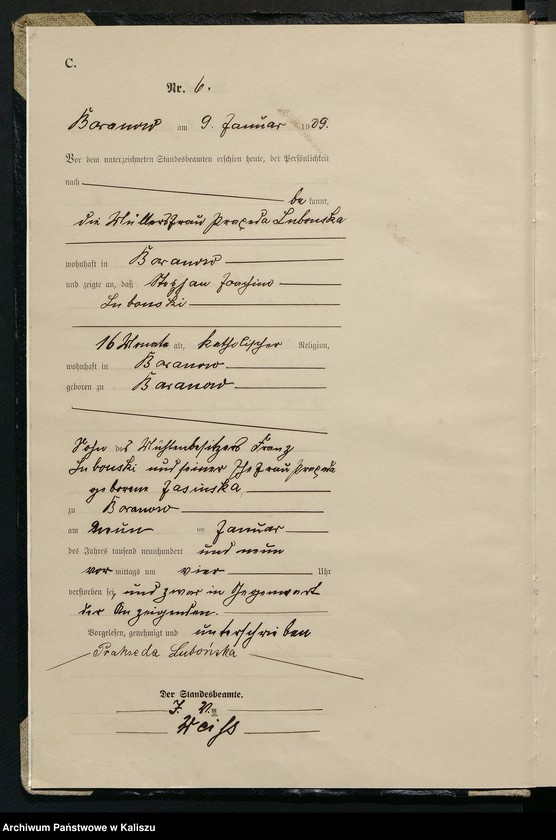 C.
Nr. 6.
Boranow am 9. Januar 1909.
Vor dem unterzeichneten Standesbeamten erschien heute, der Persönlichkeit
nach
be kannt,
die Müllersfrau Praxeda Lubonska
wohnhaft in Boranow
und zeigte an, daß Stephan Joachim
Lubonski
16 Monate alt, katholischer Religion,
wohnhaft in Boranow
geboren zu Boranow
Sohn des Mühlenbesitzers Franz
Lubonski und seiner Ehefrau Praxeda
geborene Jasinska,
zu Boranow
am neun ten Januar
des Jahres tausend neunhundert und neun
vor mittags um vier Uhr
verstorben sei, und zwar in Gegenwart
der Anzeigenden.
Vorgelesen, genehmigt und unterschrieben
Prakseda Lubońska
Der Standesbeamte.
J. V.
Weiss
Archiwum Państwowe w Kaliszu